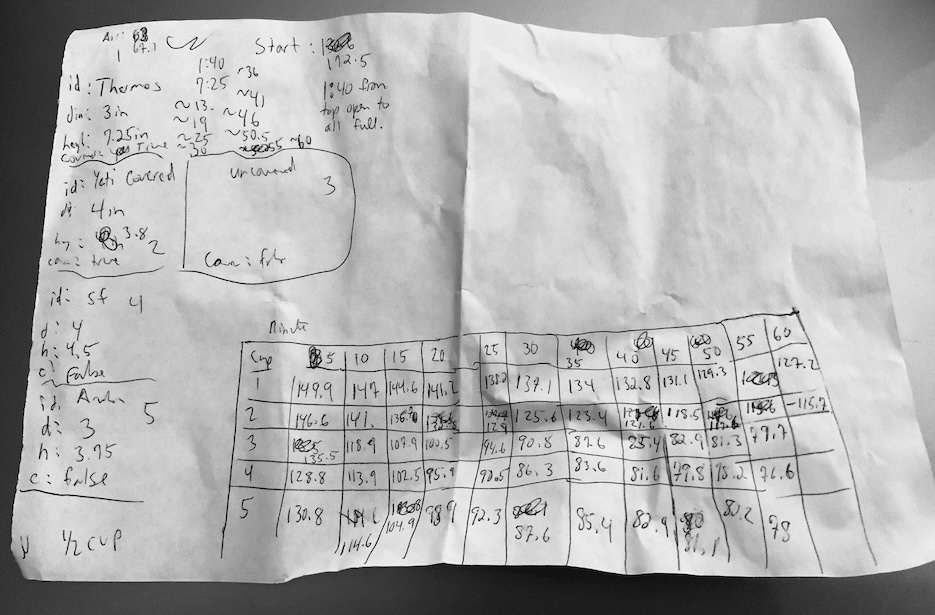 Air:
67.1
Start:
172.5
1:40 ~36
id: Thermos 7:25 ~41
1:40 from
dim: 3 in ~13 ~46
top open to
~19
all full.
heyt: 7.25in ~25 ~50.5
True ~30 ~60
id: Yeti Covered
d: 4in
3.8
2
true
uncovered
3
id: sf 4
d: 4
h: 4.5
c: False
id:
5
d: 3
h: 3.75
c: false
1/2 CUP
Minute
Cup 5 10 15 20 25 30 35 40 45 50 55 60
1 149.9 147 144.6 141.2 137.1 134 132.8 131.1 129.3 127.2
2 146.6 141. 125.6 123.4 118.5 -115.7
3 135.5 118.9 107.9 100.5 94.6 90.8 87.6 82.9 81.3 79.7
4 128.8 113.9 102.5 95.9 90.5 86.3 83.6 81.6 79.8 78.2 76.6
5 130.8 114.6 104.9 92.3 87.6 85.4 82.9 81.1 80.2 78